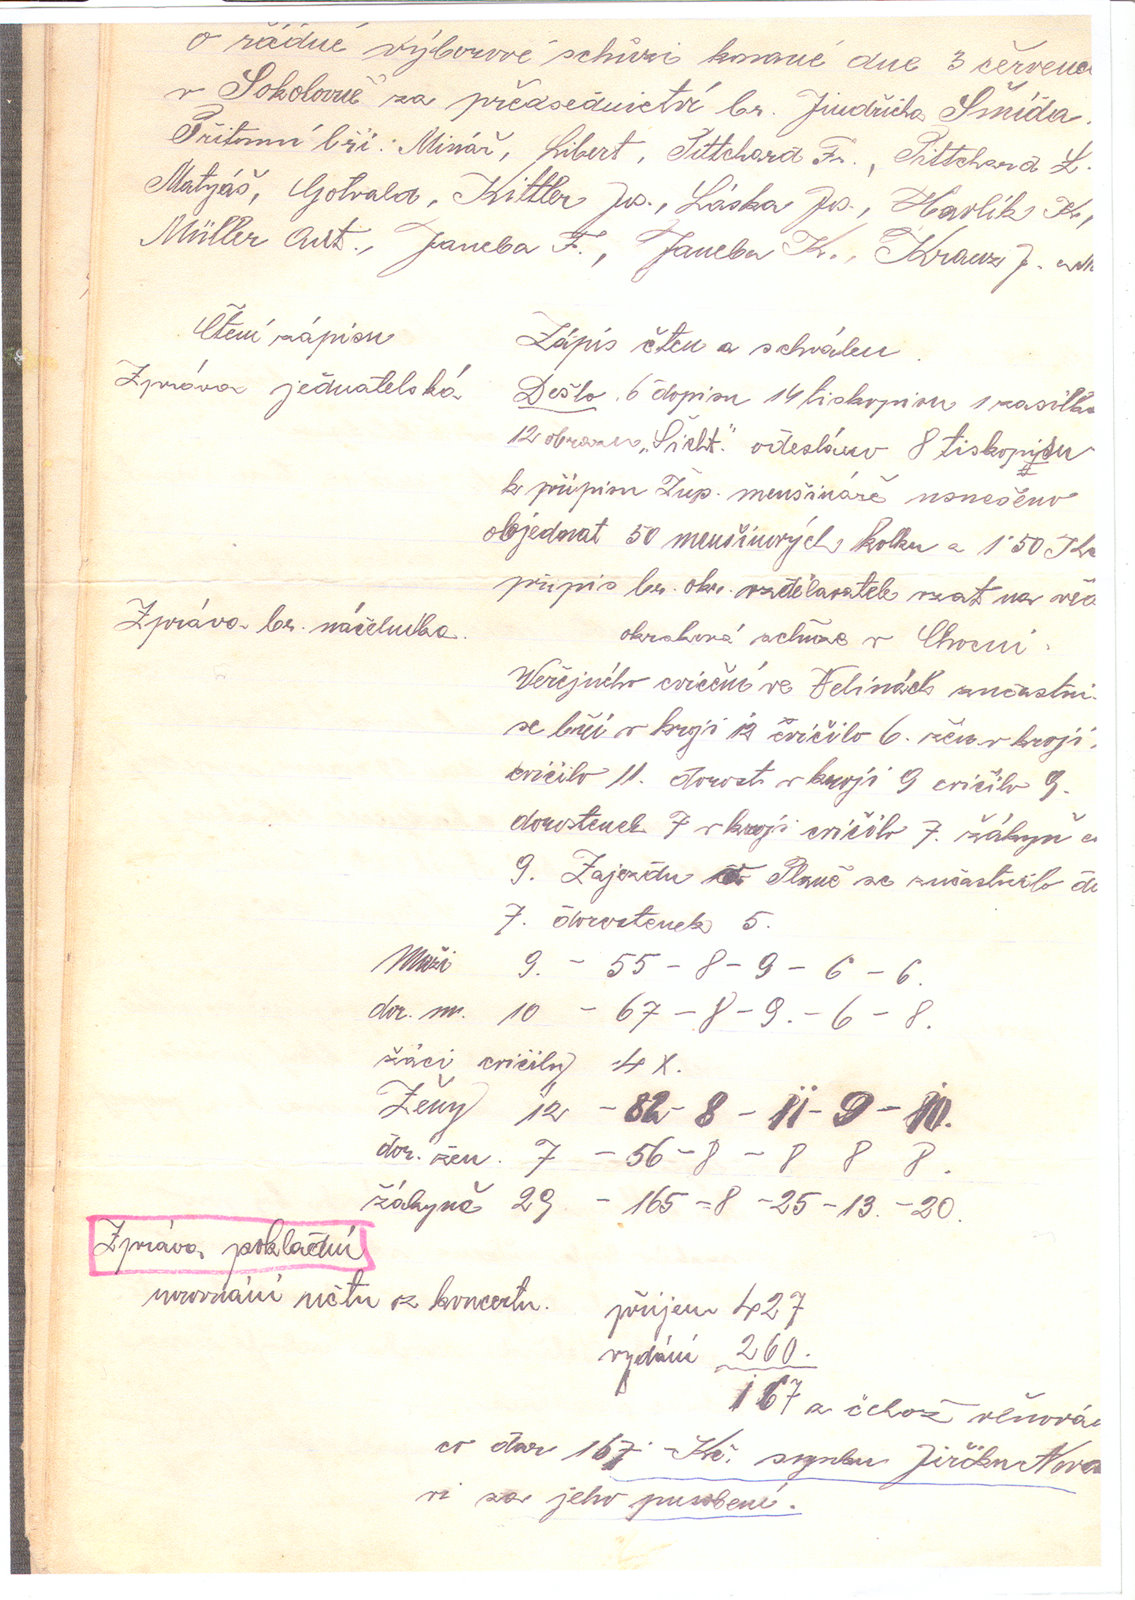 o řádné výborové schůzi konané dne 3 červen
v Sokolovně za předsednictví br. Jindřicha Šmída.
Přítomni bří: Minář, Libert, Pittchard Fr., Pittchard L.
Matyáš, Gotvald, Kittler Jos., Láska Jos., Havlík K.,
Müller Ant., Janeba F., Janeba K., Kraus J.
Čtení zápisu
Zápis čten a schválen.
Zpráva jednatelská
Došlo. 6 dopisu 14 tiskopisu 1 zasilka
12 obrazu „Šicht." odesláno 8 tiskopisu
k přípisu Žup. menšináře usnešeno
objednat 50 menšinových kolku a 1·50 Kč
přípis br. okr. vzdělavatele vzat na vě
Zpráva br. náčelníka.
okrsková schůze v Chocni.
Veřejného cvičení ve Telinách zučastni-
se bří v kroji 12 cvičilo 6. žen v kroji.
cvičilo 11. dorost. v kroji 9 cvičilo 9.
dorostenek 7 v kroji cvičilo 7. žákyň c
9. Zajezdu Plané se zučastnilo do
7. dorostenek 5.
Muži 9. - 55 - 8 - 9 - 6 - 6.
dor. m. 10 - 67 - 8 - 9. - 6 - 8.
žáci cvičily 4 x.
Ženy 12 - 82 - 8 - 11 - 9 - 10.
dor. žen. 7 - 56 - 8 - 8 8 8.
žákyně 29 - 165 - 8 - 25 - 13. - 20.
Zpráva pokladní
urovnání účtu z koncertu.
příjem 427
vydání 260.
167 z čehož věnová
co dar 167 Kč. synku Jiříku Nova
vi za jeho pusobení.